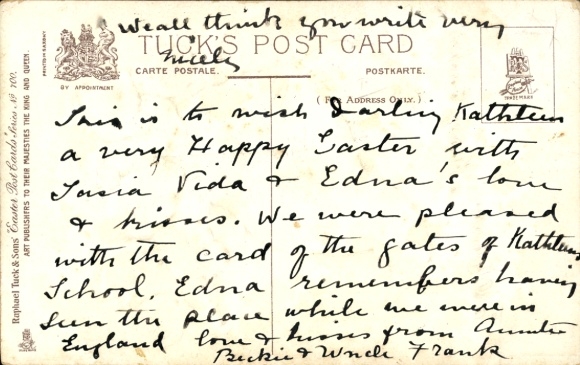 We all think you write very
nicely
TUCK'S POST CARD
CARTE POSTALE.
POSTKARTE.
(For Address Only.)
BY APPOINTMENT
PRINTED IN SAXONY
TRADE MARK
Raphael Tuck & Sons' "Easter" Post Cards Series No 700.
ART PUBLISHERS TO THEIR MAJESTIES THE KING AND QUEEN.
This is to wish Darling Kathleen
a very Happy Easter with
Tasia Vida & Edna's love
& kisses. We were pleased
with the card of the gates of Kathleens
School. Edna remembers having
seen the place while we were in
England love & kisses from Auntie
Beckie & Uncle Frank